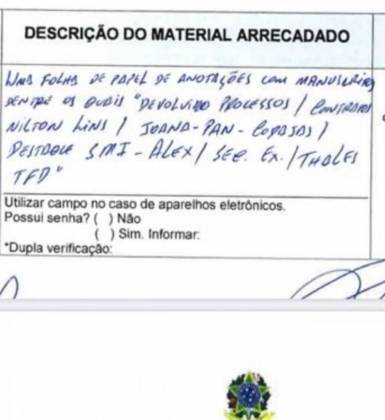 DESCRIÇÃO DO MATERIAL ARRECADADO
UMA FOLHA DE PAPEL DE ANOTAÇÕES COM MANUSCRITOS
DENTRE OS QUAIS "DEVOLVIDO PROCESSOS / CONTRATOS
NILTON LINS / JOANA-PAN-COPASAS /
DESTAQUE SMI-ALEX / SEC. EX. / THALES
TFD"
Utilizar campo no caso de aparelhos eletrônicos.
Possui senha? ( ) Não
( ) Sim. Informar:
*Dupla verificação: